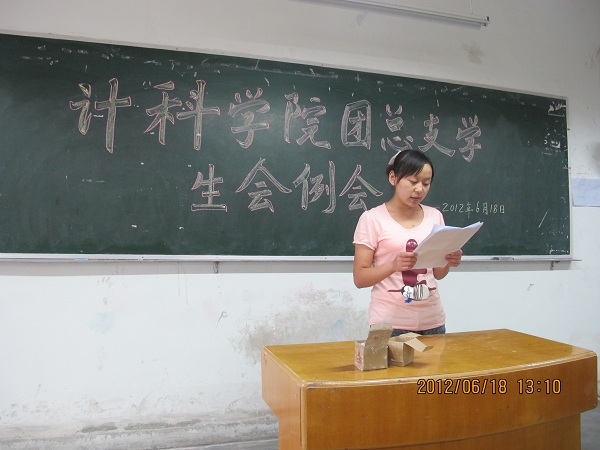 计科学院团总支学
生会例会
2012年6月18日
2012/06/18 13:10